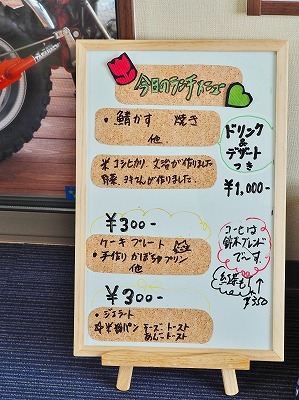 今日のランチメニュー
・鯖かす 焼き
他
ドリンク
&
デザート
つき
¥1,000-
米 コシヒカリ 父が作りました
野菜 さんが作りました
¥300-
ケーキプレート
・手作りかぼちゃプリン
他
コーヒーは
鈴木ブレンド
で〜す。
紅茶も
¥350
¥300-
・ジェラート
☆米粉パン チーズトースト
あんこトースト